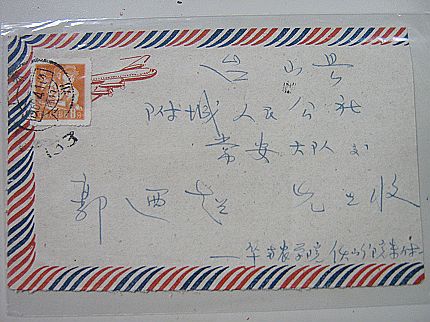 台山县
附城人民公社
常安大队
郭西超 先生收
华南农学院